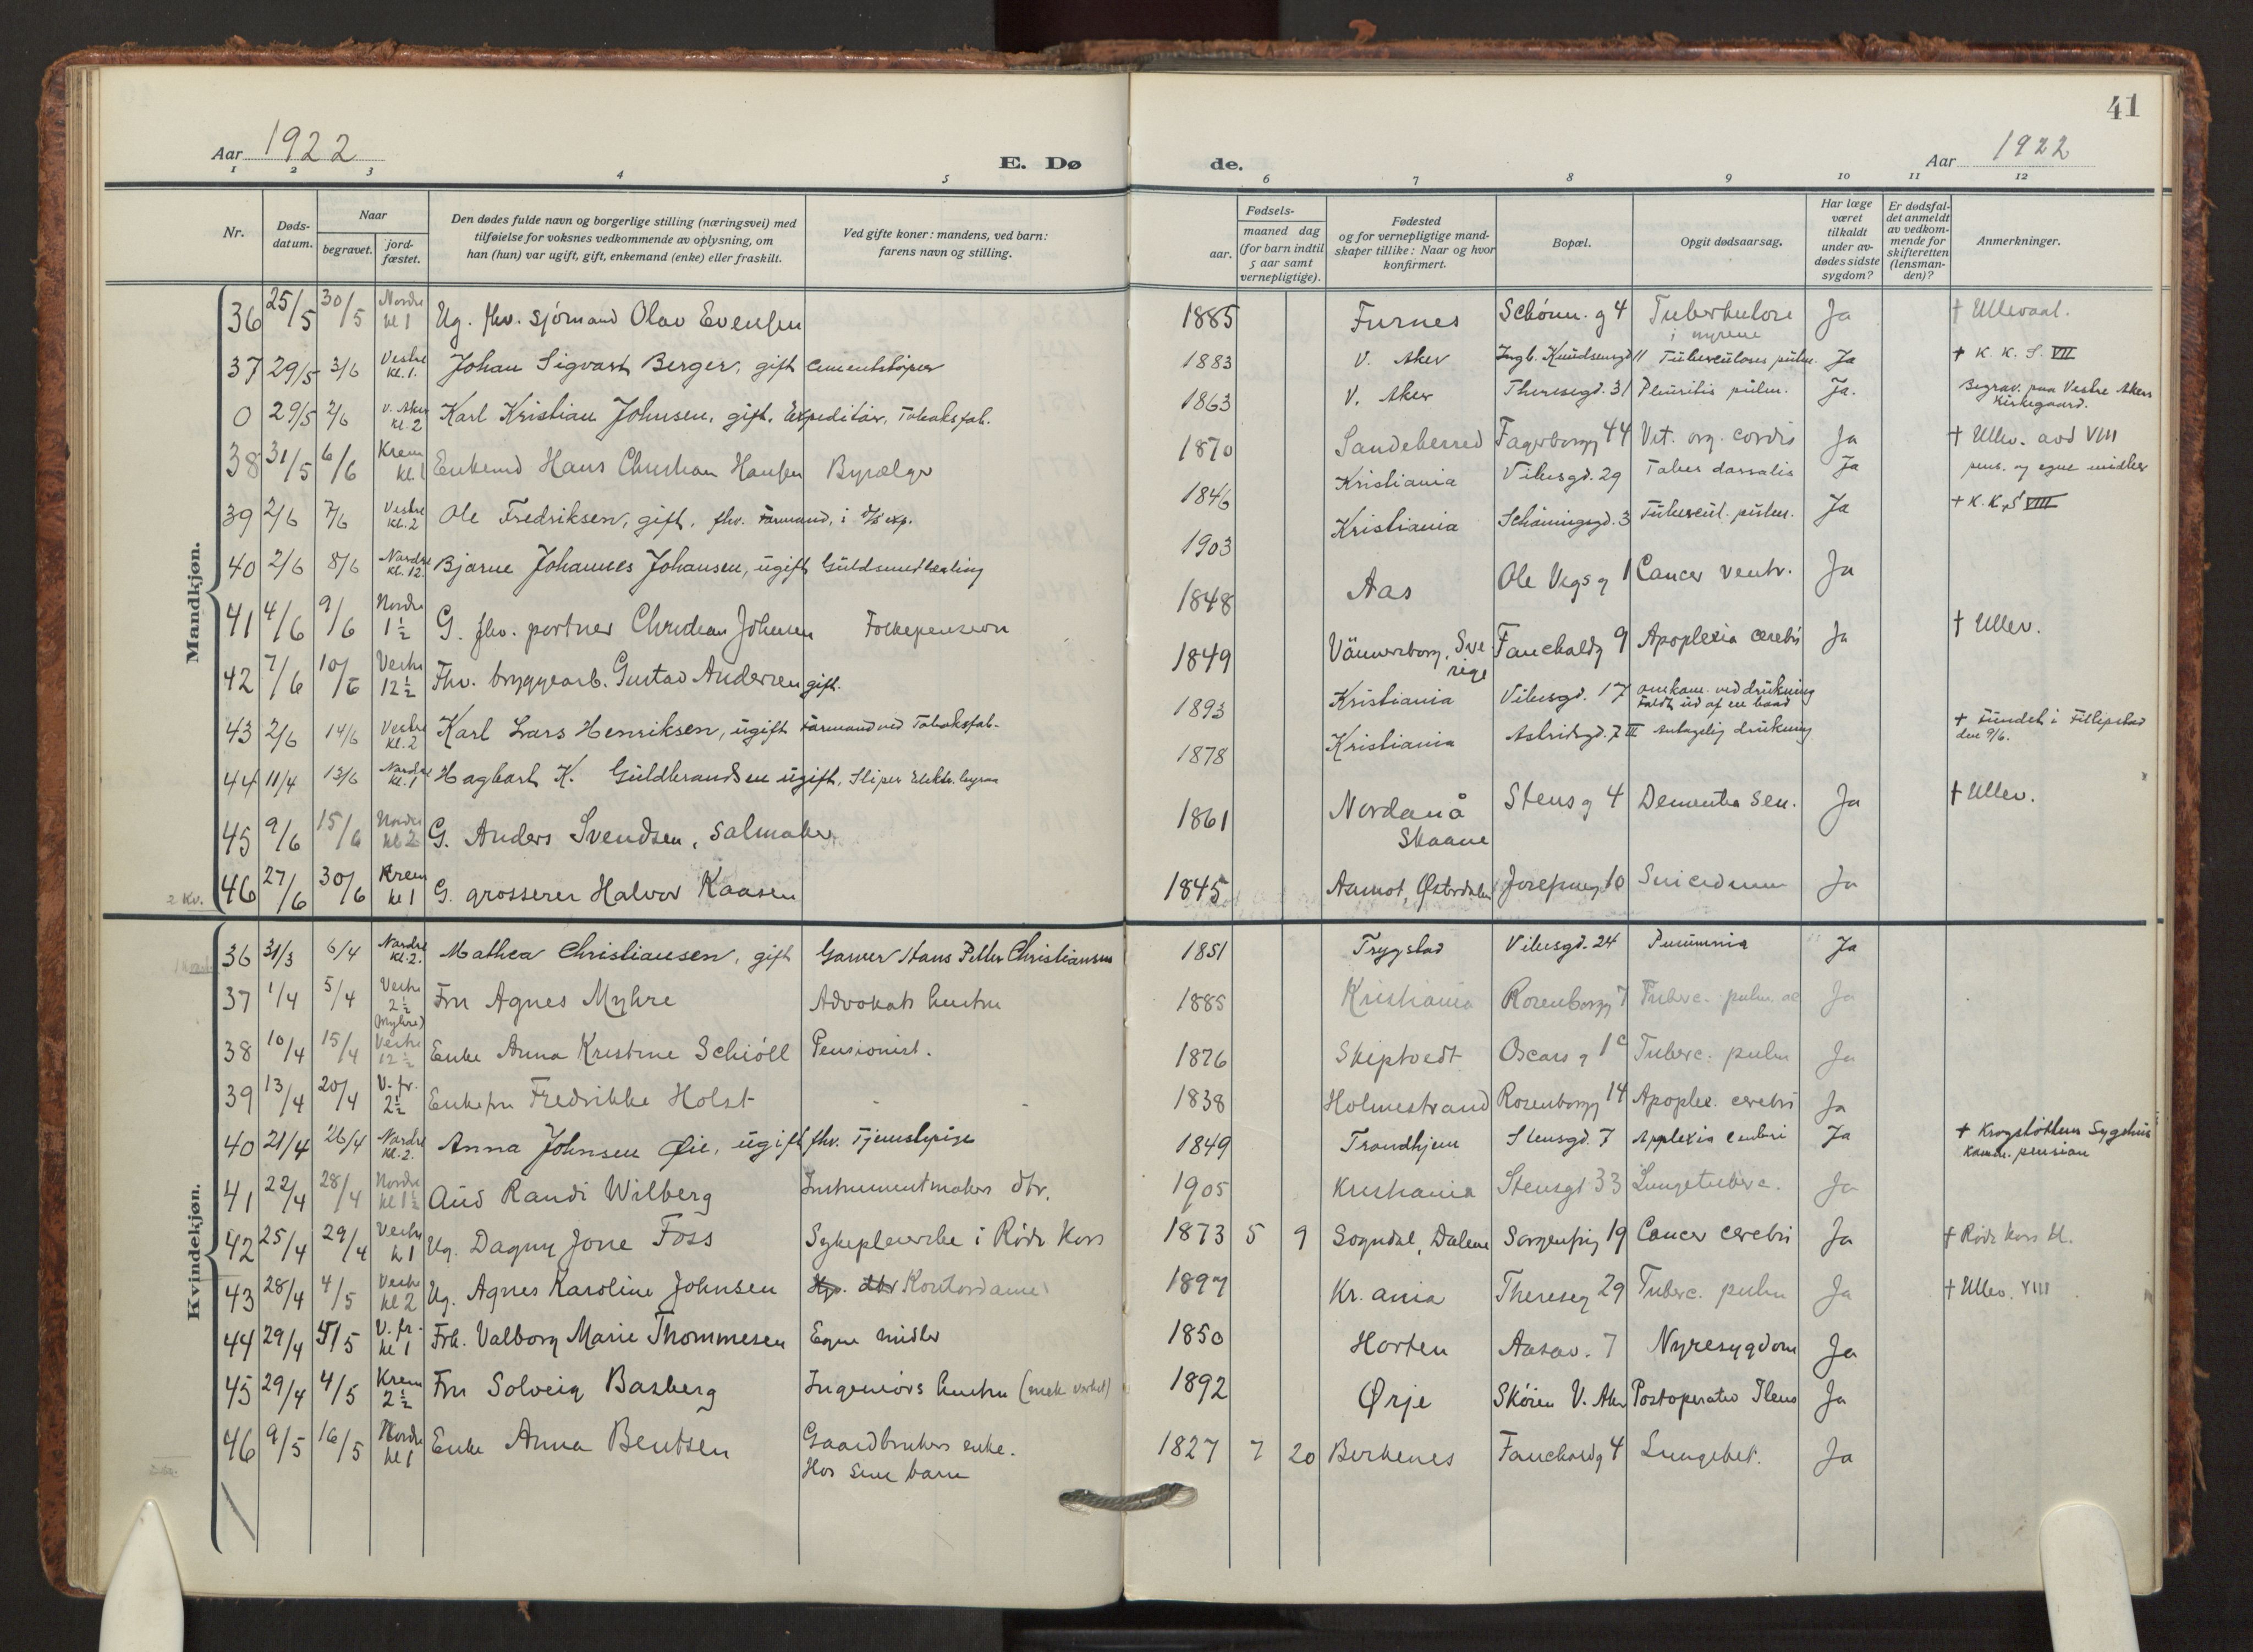 41
Aar 1922 E. Dø de. Aar 1922
1 2 3 4 5 6 7 8 9 10 11 12
Nr.
Døds-
datum.
Naar
begravet.
jord-
fæstet.
Den dødes fulde navn og borgerlige stilling (næringsvei) med
tilføielse for voksnes vedkommende av oplysning, om
han (hun) var ugift, gift, enkemand (enke) eller fraskilt.
Ved gifte koner: mandens, ved barn:
farens navn og stilling.
Fødsels-
aar.
maaned dag
(for barn indtil
5 aar samt
vernepligtige).
Fødested
og for vernepligtige mand-
skaper tillike: Naar og hvor
konfirmert.
Bopæl.
Opgit dødsaarsag.
Har læge
været
tilkaldt
under av-
dødes sidste
sygdom?
Er dødsfal-
det anmeldt
av vedkom-
mende for
skifteretten
(lensman-
den)?
Anmerkninger.
Mandkjøn.
36 25/5 30/5 Nordre kl 1 Ug. fhv. sjømand Olav Evensen 1885 Furnes Schønn. g 4 Tuberkulose i nyrene Ja † Ullevaal.
37 29/5 3/6 Vestre kl. 1. Johan Sigvart Berger, gift Cementstøper 1883 V. Aker Ingb. Knudsensgd 11 Tuberculoses pulm. Ja † K. K. S. VII
0 29/5 2/6 V. Aker kl. 2 Karl Kristian Johnsen, gift. Expeditør, Tobaksfab. 1863 V. Aker Theresegd. 31 Pleuritis pulm. Ja. Begrav. paa Vestre Akers Kirkegaard.
38 31/5 6/6 Krem kl 1 Enkemd Hans Christian Hansen Bypælger 1870 Sandeherred Fagerborgg 44 Vit. org. cordis Ja † Ullev. avd VIII
39 2/6 7/6 Vestre kl. 2 Ole Fredriksen, gift, fhv. Formand, i exp. 1846 Kristiania Vibesgd. 29 Tabes dorsalis Ja pens. og egne midler
40 2/6 8/6 Nordre kl. 12. Bjarne Johannes Johansen, ugift Guldsmedlærling 1903 Kristiania Schøningsgd. 3 Tubercul. pulm. Ja † K. K. S VIII
41 4/6 9/6 Nordre 1½ G. fhv. portner Christian Johnsen Folkepension 1848 Aas Ole Vigs g 1 Cancer ventr. Ja
42 7/6 10/6 Vestre 12½ Fhv. bryggearb. Gustav Andersen gift. 1849 Vännersborg, Sverige Fauchaldg 9 Apoplexia cerebri Ja † Ullev.
43 2/6 14/6 Vestre kl. 2 Karl Lars Henriksen, ugift Formand ved Tobaksfab. 1893 Kristiania Vibesgd. 17 omkom. ved drukning faldt ud af en baad † Fundet i Fillipstad den 9/6.
44 11/4 13/6 Nordre kl. 1 Hagbart K. Guldbrandsen ugift, Sliper Elektr. byraa 1878 Kristiania Astridsgd. 7 III Antagelig drukning
45 9/6 15/6 Nordre kl 2 G. Anders Svendsen, salmaker 1861 Nordanå Skaane Stensg 4 Dementia sen. Ja † Ullev.
2 Kv. 46 27/6 30/6 Krem kl 1 G. grosserer Halvor Kaasen 1845 Aamot, Østerdalen Josefineg 10 Suicidium Ja
Kvindekjøn.
36 31/3 6/4 Nordre kl. 2. Mathea Christiansen, gift Garver Hans Petter Christiansen 1851 Trygstad Vibesgd. 24 Pneumonia Ja
37 1/4 5/4 Vestre 2½ (Myhre) Fru Agnes Myhre Advokats hustru 1885 Kristiania Rosenborgg 7 Tuberc. pulm. ac Ja
38 10/4 15/4 Vestre 12½ Enke Anna Kristine Schiöll Pensionist. 1876 Skiptvedt Oscars g 1c Tuberc. pulm Ja
39 13/4 20/4 V. fr. 2½ Enkefru Fredrikke Holst - - 1838 Holmestrand Rosenborgg 14 Apoplex. cerebri Ja
40 21/4 26/4 Nordre kl. 2. Anna Johnsen Øie, ugift fhv. Tjenestepige 1849 Trondhjem Stensgd. 7 Applexia cerebri Ja † Krogstøttens Sygehus Komm. pension
41 22/4 28/4 Nordre kl 1½ Aud Randi Wilberg Instrumentmakers dtr. 1905 Kristiania Stensgt 33 Lungetuberc. Ja
42 25/4 29/4 Vestre kl 1 Ug. Dagny Jone Foss Sykepleierske i Røde Kors 1873 5 9 Sogndal, Dalene Sorgenfrig 19 Cancer cerebri Ja † Røde Kors kl.
43 28/4 4/5 Vestre kl 2 Ug. Agnes Karoline Johnsen Kontordame 1897 Kr.ania Thereseg 29 Tuberc. pulm Ja † Ullev. VIII
44 29/4 5/5 V. fr. kl 1 Frk. Valborg Marie Thommesen Egne midler 1850 Horten Aasav. 7 Nyresygdom Ja
45 29/4 4/5 Krem 2½ Fru Solveig Basberg Ingeniørs hustru (mek verkst) 1892 Ørje Skøien V. Aker Postoperativ Ileus Ja
46 9/5 16/5 Nordre kl 1 Enke Anna Bentsen Gaardbrukers enke. Hos sine barn 1827 7 20 Birkenes Fauchaldg 4 Lungebet. Ja